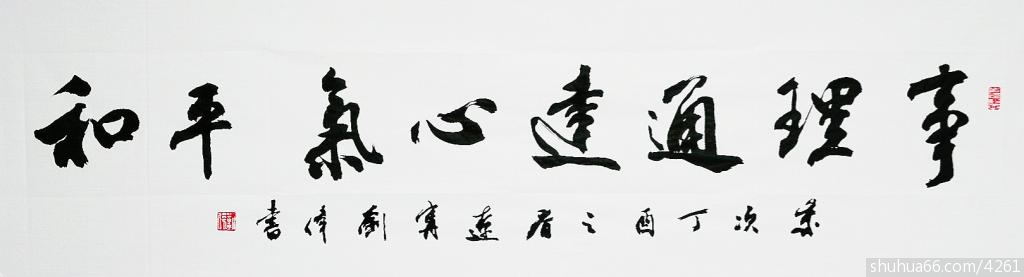 事理通達心氣平和
歲次丁酉之春遼寧劉偉書
shuhua66.com/4261